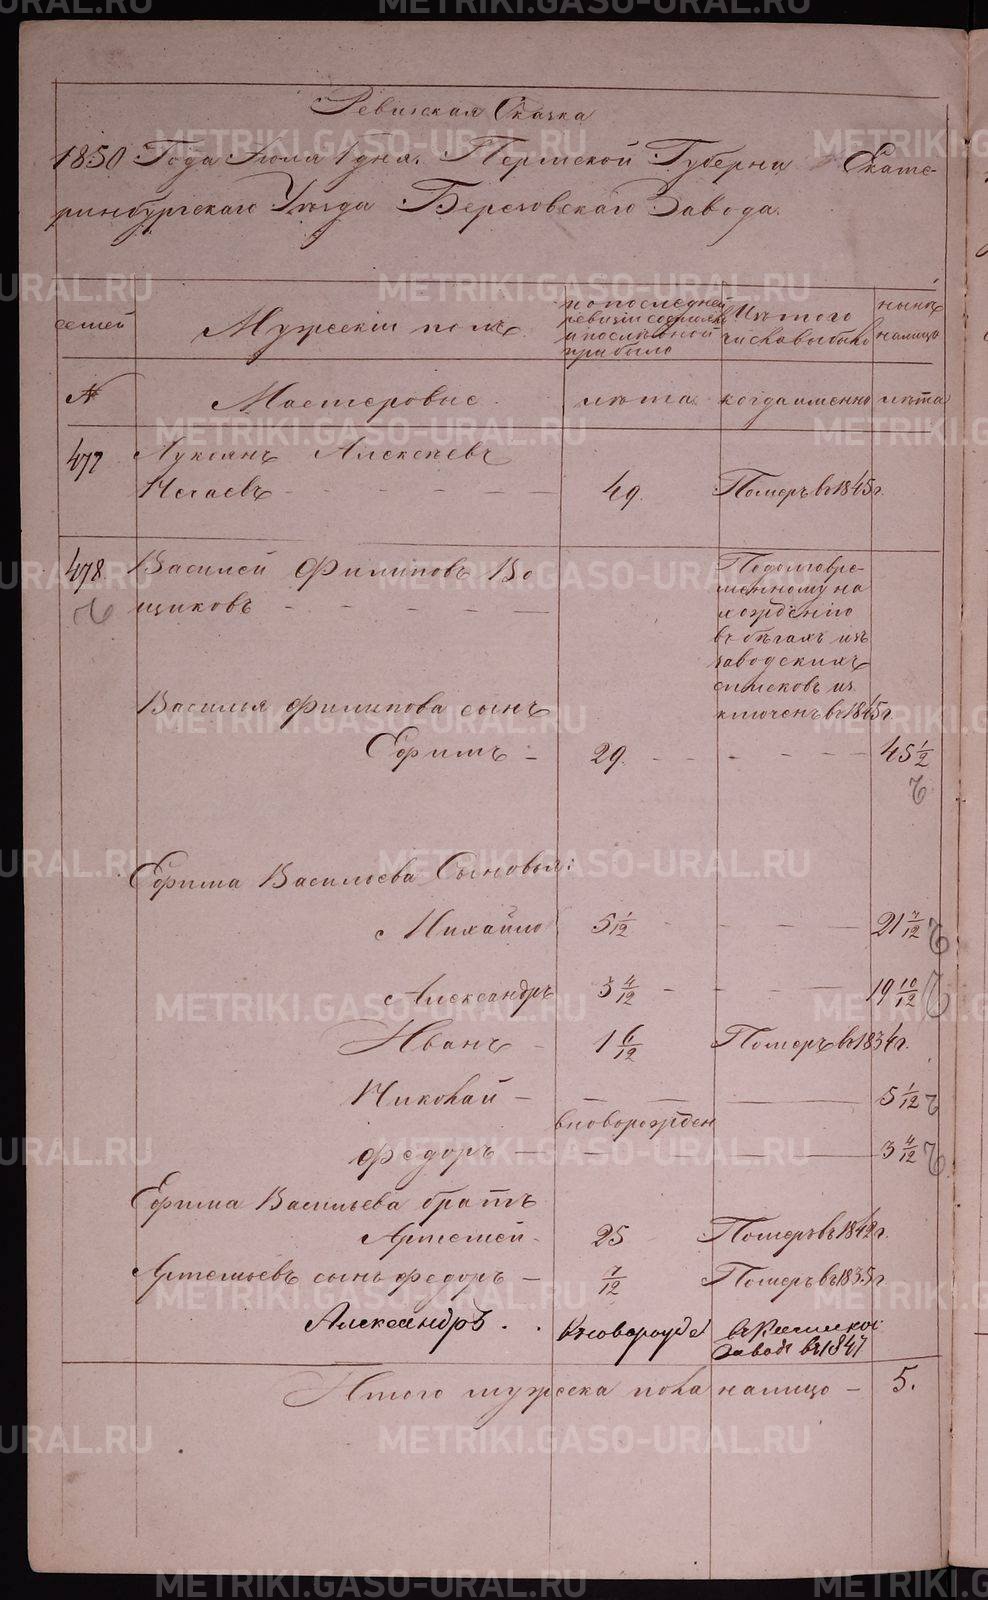 Ревижская Сказка
1850 Года Июля 1 дня. Пермской Губерни Екате-
ринбургскаго Уезда Березовскаго Завода.
семей
Мужескій полъ
по последней ревизіи состояло и после оной прибыло
Изъ того числа выбыло
ныне на лицо
№ Мастеровые лета. когда именно лета
477 Лукоянъ Алексеевъ
49. Померъ в 1845 г.
478. Василей Филиповъ Во
щиковъ
Подолговре-
менному на
хожденію
въ бегахъ изъ
заводскихъ
списковъ из
ключенъ в 1845 г.
Василья Филипова сынъ
Ефимъ - 29. 45 1/2
Ефима Васильева Сыновья:
Михайло 5 1/12 21 7/12
Александръ 3 4/12 19 10/12
Иванъ - 1 6/12 Померъ в 1834 г.
Николай - 5 1/12
вноворожден
Федоръ 3 4/12
Ефима Васильева братъ
Артемей - 25 Померъ въ 1842 г.
Артемьевъ сынъ Федоръ - 7/12 Померъ въ 1835 г.
Александръ . .
завод въ 1847
Итого мужеска пола налицо - 5.
METRIKI.GASO-URAL.RU